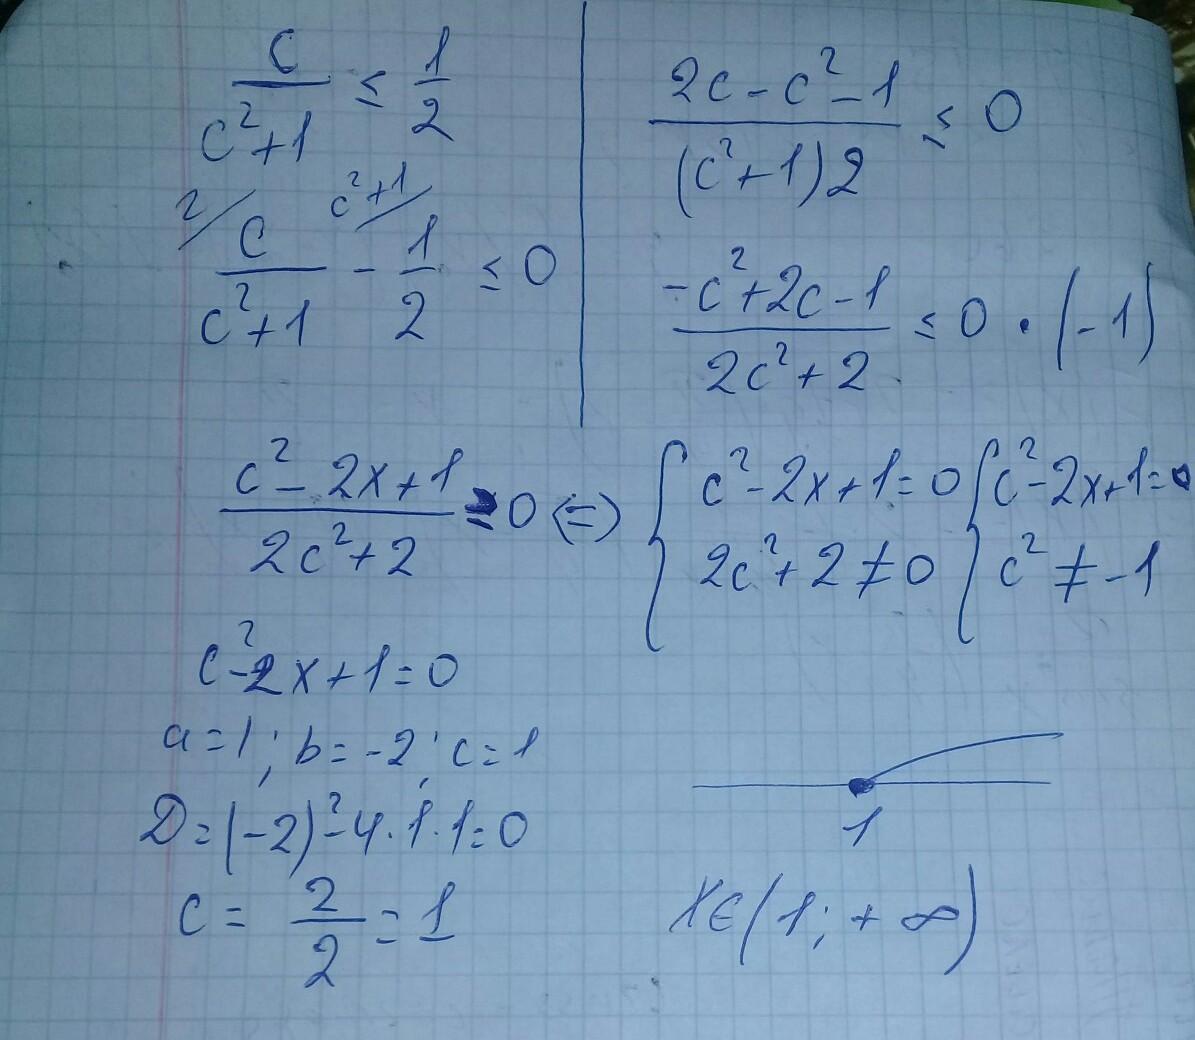 c/(c²+1) ≤ 1/2
2/ c/(c²+1) - c²+1/ 1/2 ≤ 0
(2c - c² - 1)/((c²+1)2) ≤ 0
(-c²+2c-1)/(2c²+2) ≤ 0 · (-1)
(c² - 2x + 1)/(2c²+2) 0 (=) { c² - 2x + 1 = 0 { c² - 2x + 1 = 0
2c² + 2 ≠ 0 c² ≠ -1
c² - 2x + 1 = 0
a = 1; b = -2; c = 1
D = (-2)² - 4 · 1 · 1 = 0
c = 2/2 = 1
1
X∈(1; + ∞)